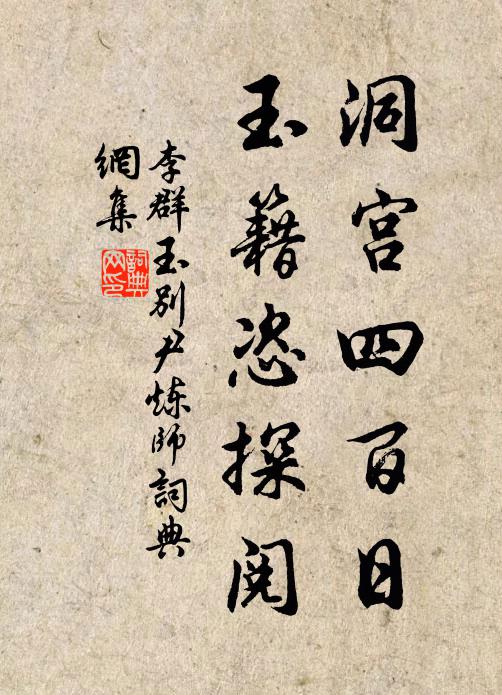 洞宫四百日
玉籍恣探阅
李群玉别尹炼師詞典
網集
詞典
网印